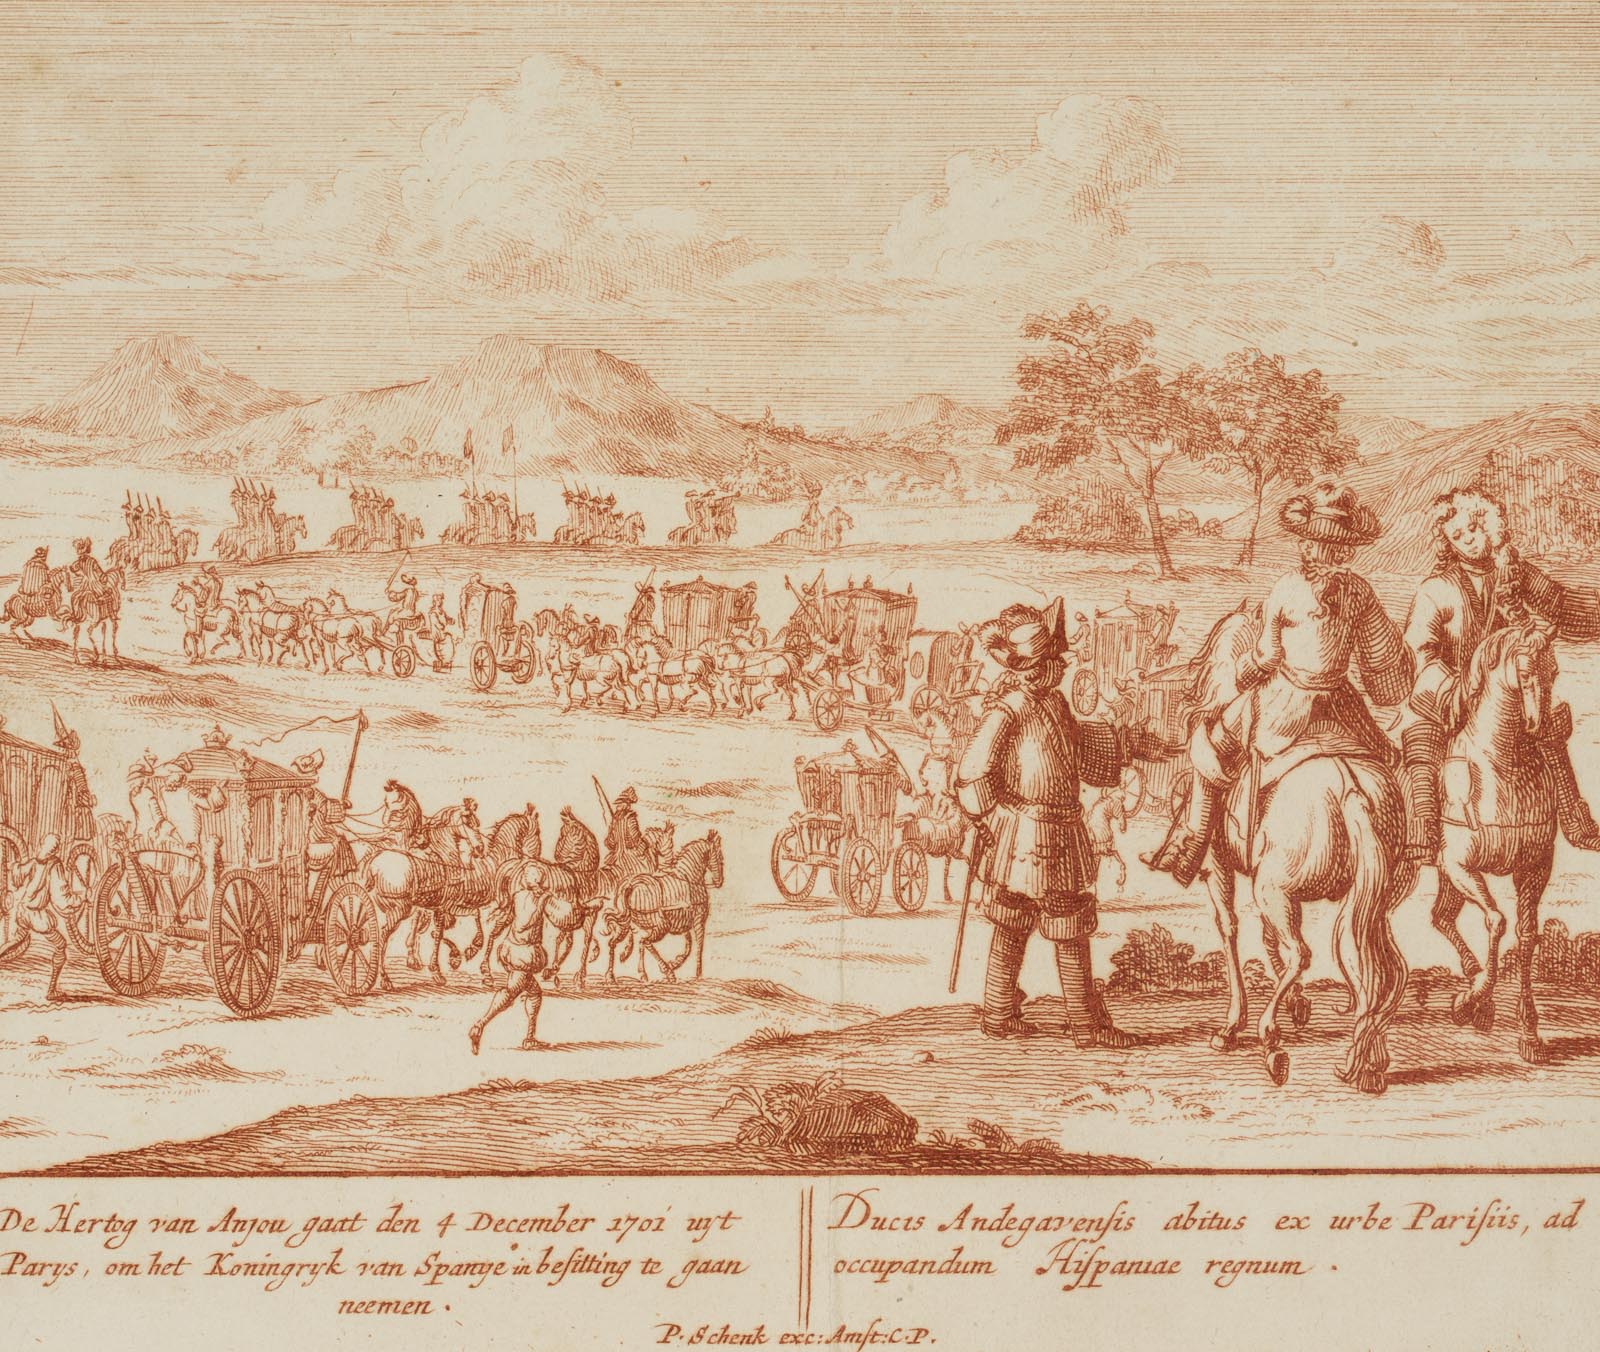 De Hertog van Anjou gaat den 4 December 1701 uyt
Parys, om het Koningryk van Spanje in besitting te gaan
neemen.
Ducis Andegavensis abitus ex urbe Parisiis, ad
occupandum Hispaniae regnum.
P. Schenk exc: Amst: C. P.